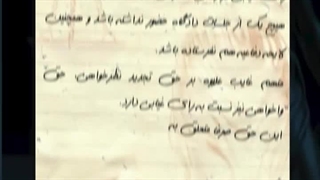 هیچ یک از جلسات دادگاه حضور نداشته باشد و همچنین
لایحه دفاعیه هم نفرستاده باشد.
متهم غایب علاوه بر حق تجدید نظرخواهی، حق
واخواهی نیز نسبت به رای غیابی دارد.
این حق صرفا متعلق به